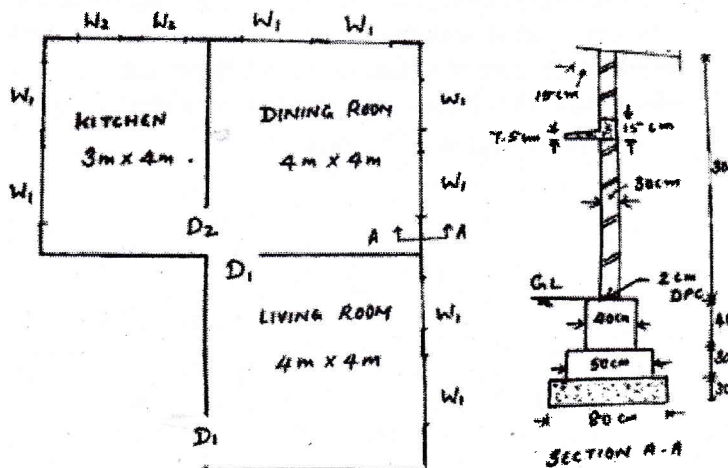 W2 W2 W1 W1
W1
W1
KITCHEN
3m x 4m.
DINING ROOM
4m x 4m
W1
W1
D2
D1
A A
LIVING ROOM
4m x 4m
W1
W1
D1
15cm
7.5cm
15cm
30cm
30
GL
2cm
DPC
40cm
50cm
30
30
80cm
SECTION A-A